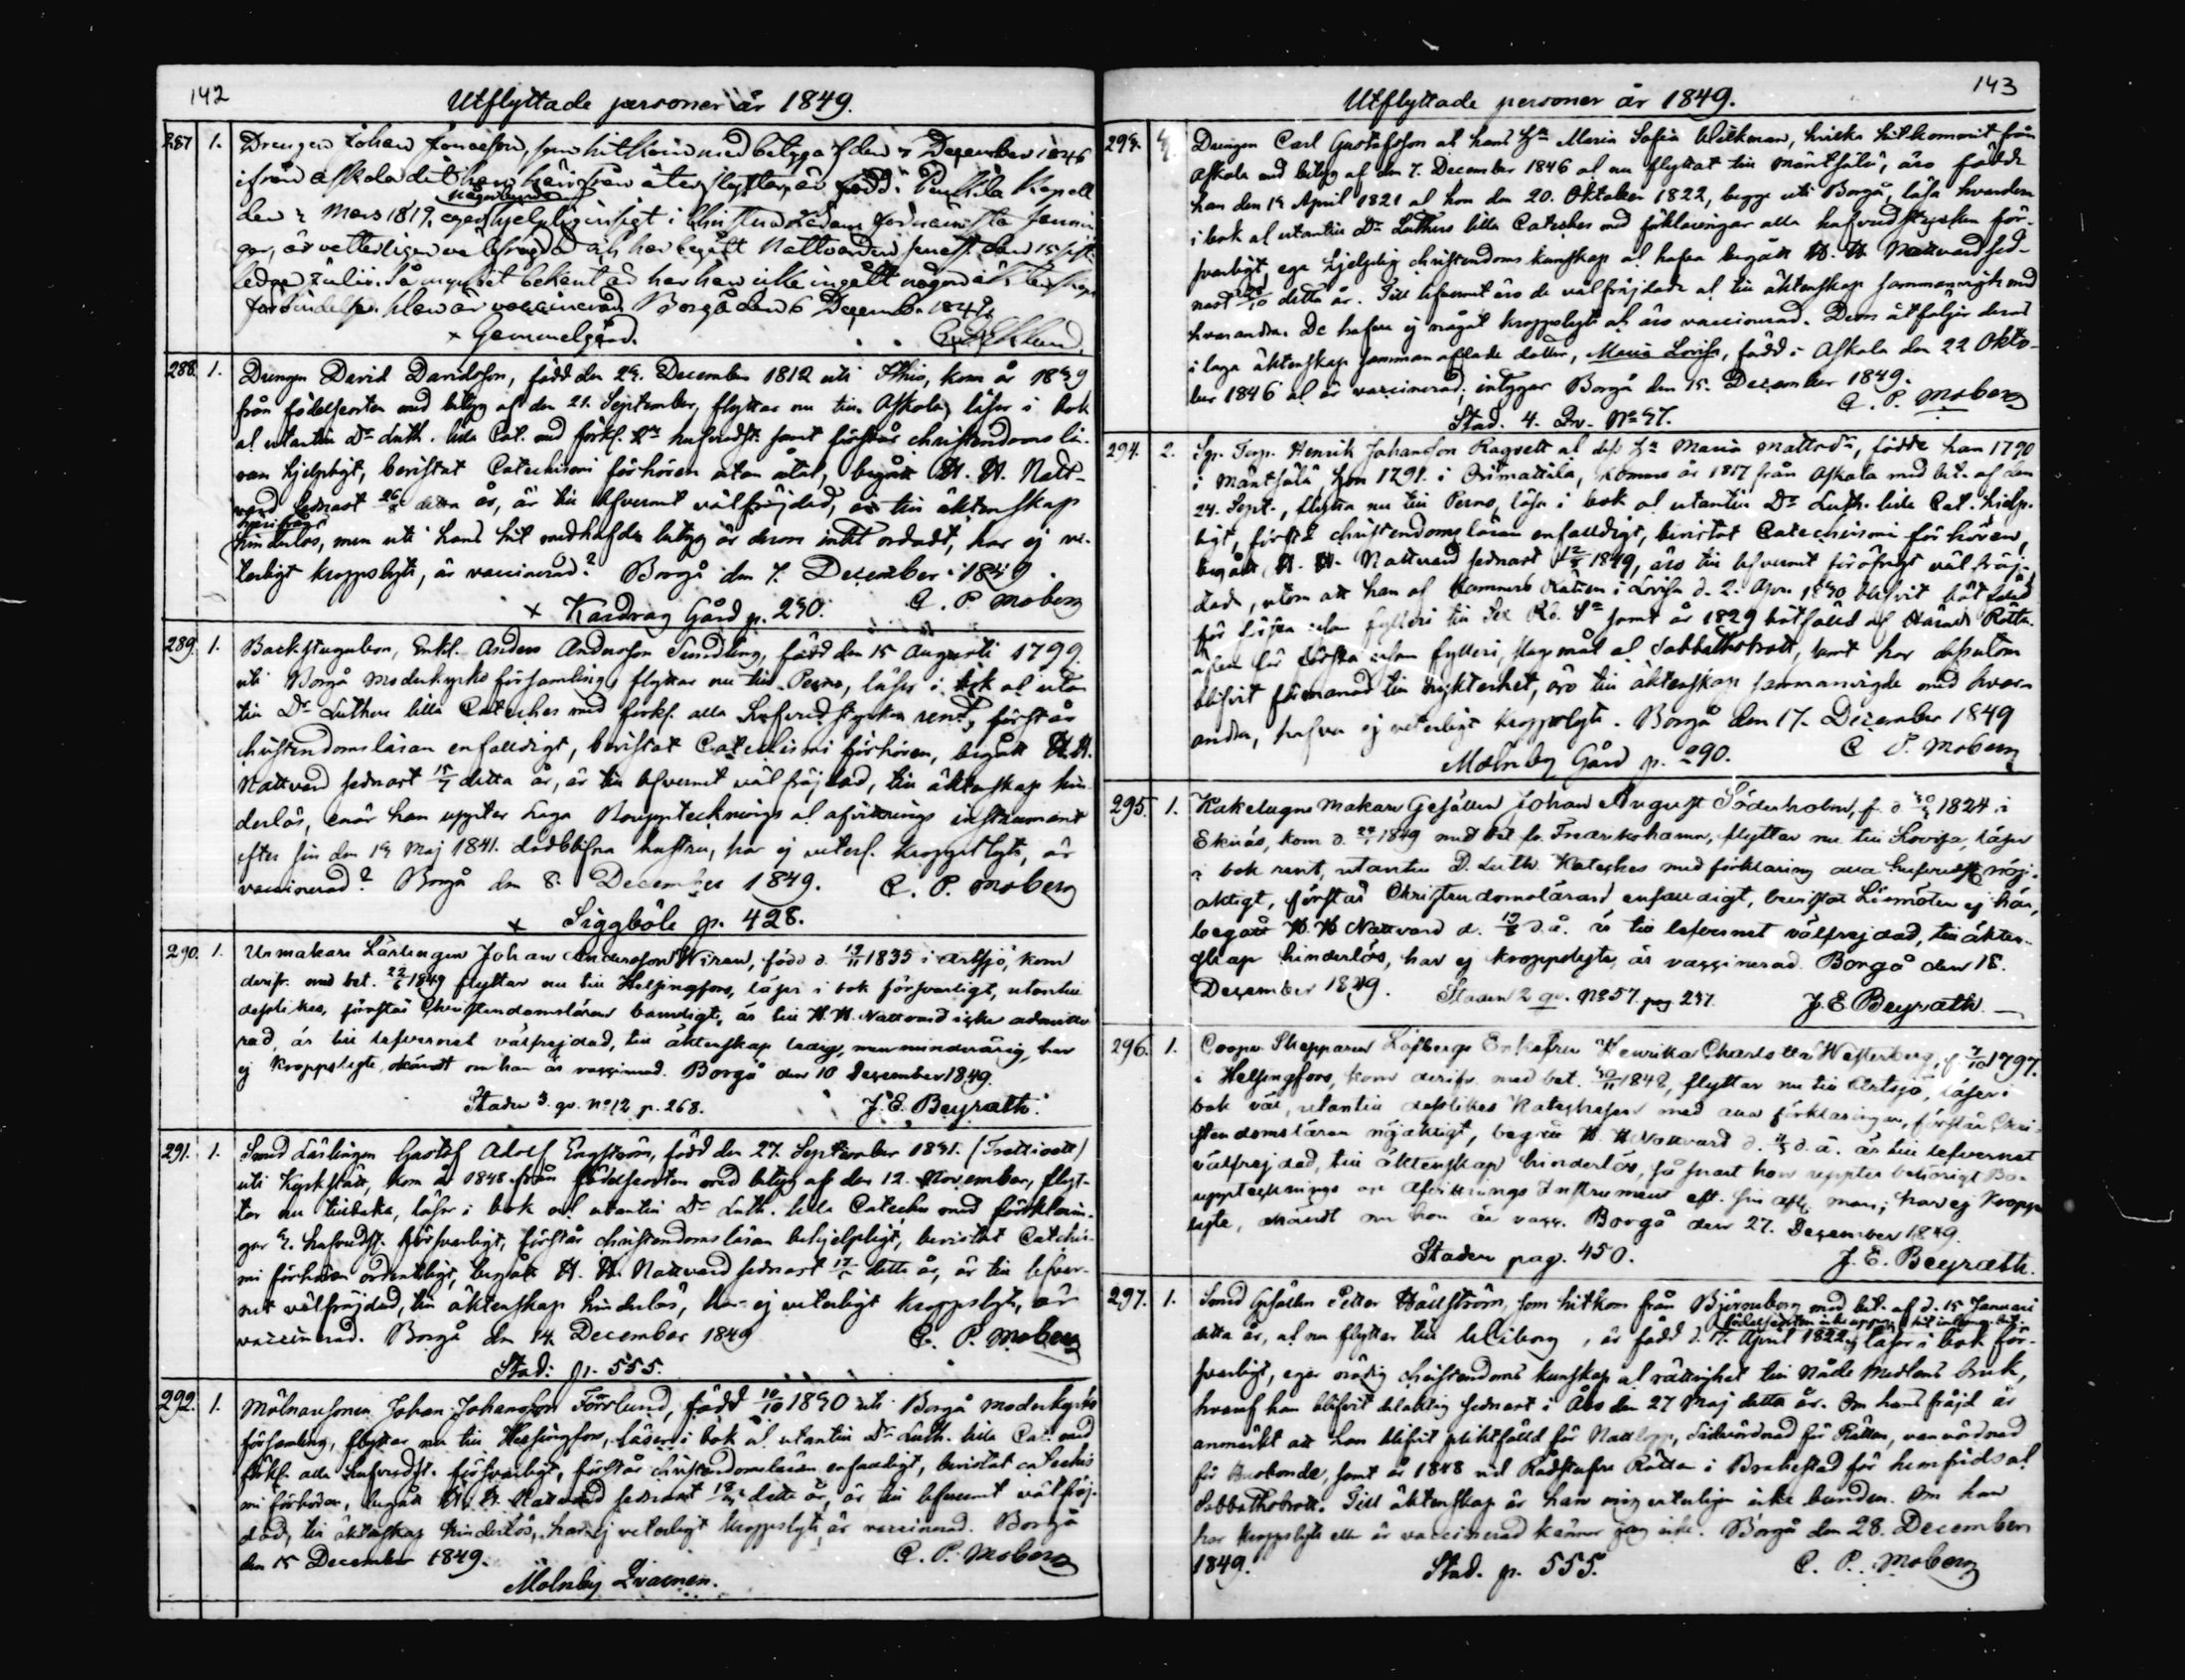 142
Utflyttade personer år 1849.
287 1. Drengen Johan som hitkom med betyg af den 7 December 1846
ifrån Askola dit han härifrån återflyttar, är född i Kapell
den 2 Mars 1819, eger hjelplig insigt i Christendomens
är vetterligen välfrägdad och har begått Nattvarden senast den 15 sist-
ledne Julii. Så mycket bekant är har han icke ingått någon äktenskaps
förbindelse. Han är vaccinerad. Borgå den 6 Decemb. 1849
× Gammelgård.
288. 1. Drengen David Davidsson, född den 29. December 1812 uti Ithis, kom år 1839
från födelseorten med betyg af den 21. September, flyttar nu till Askola, läser i bok
al utantill Dr Luth. lilla Cat. med förkl. hufvudst. samt förstår christendoms lä-
ran hjelpligt, bevistat Catechismi förhören utan åtal, begått H. H. Natt-
vard sednast 26/8 detta år, är till lefvernet välfräjdad, är till äktenskap
härifrån
hinderlös, men uti hans hit medhafda betyg är derom intet ordadt, har ej ve-
terligt kroppslyte, är vaccinerad? Borgå den 7. December 1849.
× Kardrag Gård p. 230. C. P. Moberg
289. 1. Backstugukarn, Enkl. Anders Andersson Sundberg, född den 15 Augusti 1799
uti Borgå moderkyrko församling, flyttar nu till Perno, läser i bok al utan
till Dr Luthers lilla Cateches med förkl. alla hufvudstycken rent, förstår
christendomsläran enfaldigt, bevistat Catechismi förhören, begått H. H.
Nattvard sednast 15/7 detta år, är till lefvernet välfräjdad, till äktenskap hin-
derlös, enär han uppter Laga Bouppteknings al afvittrings instrument
efter sin den 19 Maj 1841. dödblifna hustru, har ej veterl. kroppslyte, är
vaccinerad? Borgå den 8. December 1849. C. P. Moberg
× Siggböle p. 428.
290. 1. Urmakare Lärlingen Johan Andersson Wiren, född d. 19/11 1835 i Artsjö, kom
derifr. med bet. 22/6 1849 flyttar nu till Helsingfors, läser i bok försvarligt, utantill
desslikes, förstår Christendomsläran barnsligt, är till H. H. Nattvard icke admitte-
rad, är till lefvernet välfrejdad, till äktenskap ledig, men minderårig, har
ej kroppslyte, okändt om han är vaccinerad. Borgå den 10 December 1849.
Staden 3. qv. No 12 p. 268. J. E. Beyrath.
291. 1. Smed Lärlingen Gustaf Adolf Engström, född den 27. September 1831. (Trettioett)
uti Kyrkslätt, kom år 1848 från födelseorten med betyg af den 12. November, flyt-
tar nu tillbaka, läser i bok al utantill Dr Luth. lilla Cateches med förklarin-
gar hufvudst. försvarligt, förstår christendomsläran behjelpligt, bevistat Catechis-
mi förhören ordentligt, begått H. H. Nattvard sednast detta år, är till lefver-
net välfräjdad, till äktenskap hinderlös, har ej veterligt kroppslyte, är
vaccinerad. Borgå den 14 December 1849 C. P. Moberg
Stad. p. 555.
292. 1. Mölnaresonen Johan Johansson Forslund, född 10/10 1830 uti Borgå moderkyrko
församling, flyttar nu till Helsingfors, läser i bok al utantill Dr Luth. lilla Cat. med
förkl. alla hufvudst. försvarligt, förstår christendomsläran enfaldigt, bevistat Catechis
mi förhören, begått H. H. Nattvard sednast detta år, är till lefvernet välfräj-
dad, till äktenskap hinderlös, har ej veterligt kroppslyte, är vaccinerad. Borgå
den 15 December 1849. C. P. Moberg
Molnby Qvarnen.
143
Utflyttade personer år 1849.
293. 4. Drengen Carl Gustafsson al hans Maria Sofia Wilkman, hvilka hitkommit från
Askola med betyg af den 7. December 1846 al nu flyttat till Mäntsälä, äro födde
han den 19 April 1821 al hon den 20. Oktober 1822, begge uti Borgå, läsa hvardera
i bok al utantill Dr Luthers lilla Cateches med förklaringar alla hufvudstycken för-
svarligt, ega hjelplig christendoms kunskap al hafva begått H. H. Nattvard sed-
nast detta år. Till lefvernet äro de välfräjdade al till äktenskap sammanvigde med
hvarandra. De hafva ej något kroppslyte al äro vaccinerad. Dem åtföljer deras
i laga äktenskap sammanaflade dotter, Maria Lovisa, född i Askola den 22 Okto-
ber 1846 al är vaccinerad; intygar Borgå den 15. December 1849.
Stad. 4. Qv. No 57. C. P. Moberg
294. 2. Sp. Torp. Henrik Johansson Ragvell al dess Maria Mattsdr, födde han 1790
i Mäntsälä, hon 1791. i Orimattila, komne år 1817 från Askola med bet. af den
24. Sept., flytta nu till Perno, läsa i bok al utantill Dr Luth. lilla Cat. hjelp-
ligt, förstå christendomsläran enfaldigt, bevistat Catechismi förhören,
begått H. H. Nattvard sednast 1849, äro till lefvernet för öfrigt välfräj-
dade, utom att han af Kammers Rätten i Lovisa d. 2. Apr. 1830 blifvit bötfälld
för första fylleri till Rb. Sr samt år 1829 bötfälld af Härads Rätte
för första fylleri, slagsmål al Sabbathsbrott, samt har dessutom
blifvit förmanad till nykterhet, äro till äktenskap sammanvigde med hvar-
andra, hafva ej veterligt kroppslyte. Borgå den 17. December 1849
Molnby Gård p. 290. C. P. Moberg
295. 1. Kakelugns Makare Gesällen Johan August Söderholm, f. d. 1824 i
Ekenäs, kom d. 1849 med bet. fr. Fredrikshamn, flyttar nu till Lovisa, läser
i bok rent, utantill D. Luth. Kateches med förklaring alla hufvudst. nöj-
aktigt, förstår Christendomsläran enfaldigt, bevistat Läsmöten ej här,
begått H. H. Nattvard d. d. å. är till lefvernet välfrejdad, till äkten-
skap hinderlös, har ej kroppslyte, är vaccinerad. Borgå den 18.
December 1849. Staden 2 qv. No 57. pag 237. J. E. Beyrath.
296. 1. Coopv. Skepparen Löfbergs Enkefru Henrika Charlotta Westerberg, f. 7/10 1797.
i Helsingfors, kom derifr. med bet. 1848, flyttar nu till Artsjö, läser i
bok väl, utantill desslikes Katechesen med alla förklaringar, förstår Chri-
stendomsläran nöjaktigt, begått H. H. Nattvard d. d. å. är till lefvernet
välfrejdad, till äktenskap hinderlös, så snart hon uppter behörigt Bo-
uppteknings och Afvittrings Instrument eft. sin afl. man; har ej kropps
lyte, okändt om hon är vacc. Borgå den 27. December 1849.
Staden pag. 450. J. E. Beyrath.
297. 1. Smed Gesällen Petter Hällström, som hitkom från Björneborg med bet. af d. 15 Januari
detta år, al nu flyttar till Wiborg, är född d. 17. April 1822, läser i bok för-
svarligt, eger christendoms kunskap al rättighet till Nåde Medlens bruk,
hvaraf han blifvit delaktig sednast i Åbo den 27 Maj detta år. Om hans fräjd är
anmärkt att han blifvit pliktfälld för Nattlopp, Sidvördnad för Rätten, vanvördnad
för Husbonde, samt år 1848 vid Rådstufvu Rätten i Brahestad för hemfrids al
Sabbathsbrott. Till äktenskap är han mig veterligen icke bunden. Om han
har kroppslyte eller är vaccinerad känner jag icke. Borgå den 28. December
1849. Stad. p. 555. C. P. Moberg